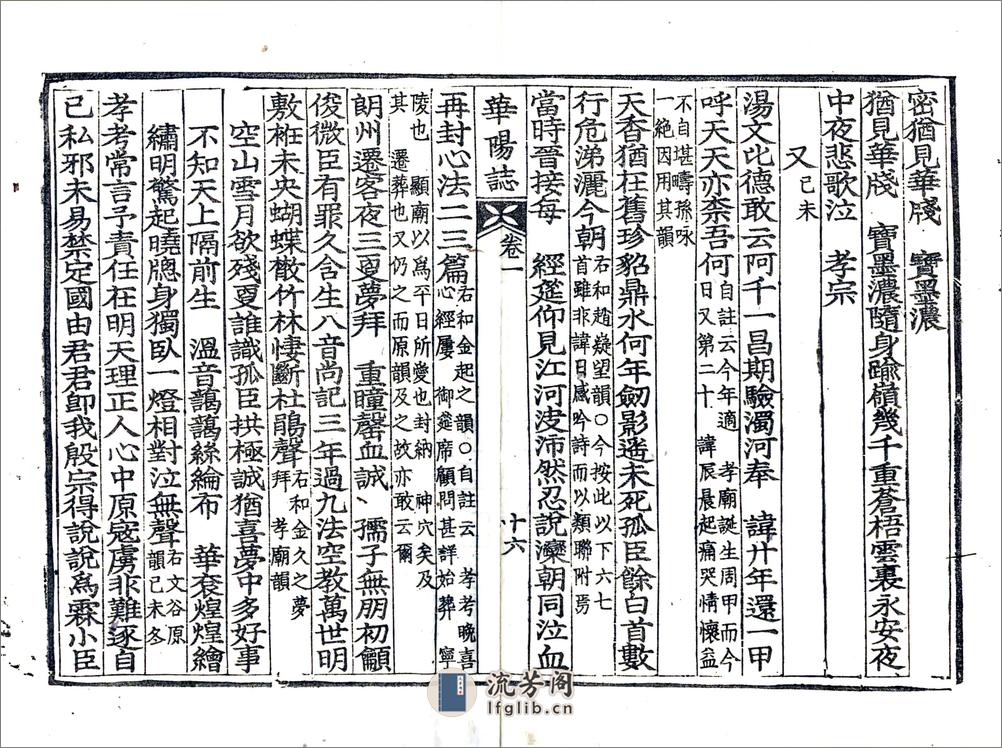 密猶見華牋 寶墨濃
猶見華牋 寶墨濃隨身踰嶺幾千重蒼梧雲裏永安夜
中夜悲歌泣 孝宗
又 己未
湯文比德敢云阿千一昌期驗濁河奉 諱廿年還一甲
呼天天亦柰吾何 自註云今年適 孝廟誕生周甲而今
日又第二十 諱辰晨起痛哭情懷益
不自堪疇孫咏
一絶因用其韻
天香猶在舊珍貂鼎水何年劒影遙未死孤臣餘白首數
行危涕灑今朝 右和趙疑望韻○今按此以下六七
首雖非諱日感吟詩而以類聯附焉
當時晉接每 經筵仰見江河決沛然忍說灤朝同泣血
華陽誌 卷一 十六
再封心法二三篇 右和金起之韻○自註云 孝考晚喜
心經屢 御筵席顧問甚詳始葬 寧
陵也 顯廟以爲平日所變也封納 神穴矣及
其 遷葬也又仍之而原韻及之故亦敢云爾
朗州遷客夜三更夢拜 重瞳罄血誠 孺子無朋初籲
俊微臣有罪久含生八音尚記三年過九法空教萬世明
敷衽未央蝴蝶散竹林悽斷杜鵑聲 右和金久之夢
拜 孝廟韻
空山雪月欲殘更誰識孤臣拱極誠猶喜夢中多好事
不知天上隔前生 溫音藹藹絲綸布 華袞煌煌繪
繡明驚起曉牕身獨臥一燈相對泣無聲 右文谷原
韻己未冬
孝考常言予責任在明天理正人心中原寇虜非難逐自
己私邪未易禁定國由君君卽我殷宗得說說爲霖小臣
流芳阁
lfglib.cn